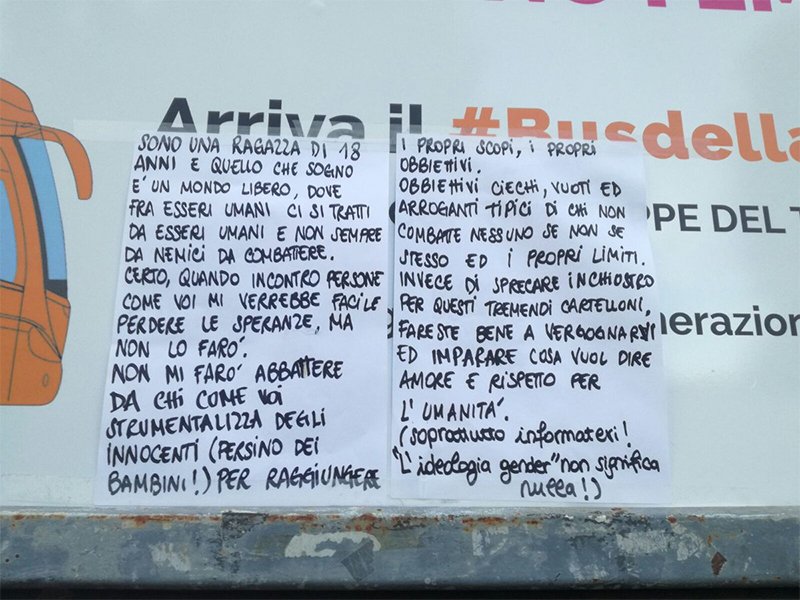 Arriva il #Busdella
PPE DEL T
nerazion
SONO UNA RAGAZZA DI 18
ANNI E QUELLO CHE SOGNO
E' UN MONDO LIBERO, DOVE
FRA ESSERI UMANI CI SI TRATTI
DA ESSERI UMANI E NON SEMPRE
DA NEMICI DA COMBATTERE.
CERTO, QUANDO INCONTRO PERSONE
COME VOI MI VERREBBE FACILE
PERDERE LE SPERANZE, MA
NON LO FARO'.
NON MI FARO' ABBATTERE
DA CHI COME VOI
STRUMENTALIZZA DEGLI
INNOCENTI (PERSINO DEI
BAMBINI!) PER RAGGIUNGERE
I PROPRI SCOPI, I PROPRI
OBBIETTIVI.
OBBIETTIVI CIECHI, VUOTI ED
ARROGANTI TIPICI DI CHI NON
COMBATTE NESSUNO SE NON SE
STESSO ED I PROPRI LIMITI.
INVECE DI SPRECARE INCHIOSTRO
PER QUESTI TREMENDI CARTELLONI,
FARESTE BENE A VERGOGNARVI
ED IMPARARE COSA VUOL DIRE
AMORE E RISPETTO PER
L'UMANITA'.
(soprattutto informatevi!
"L'ideologia gender" non significa
nulla!)